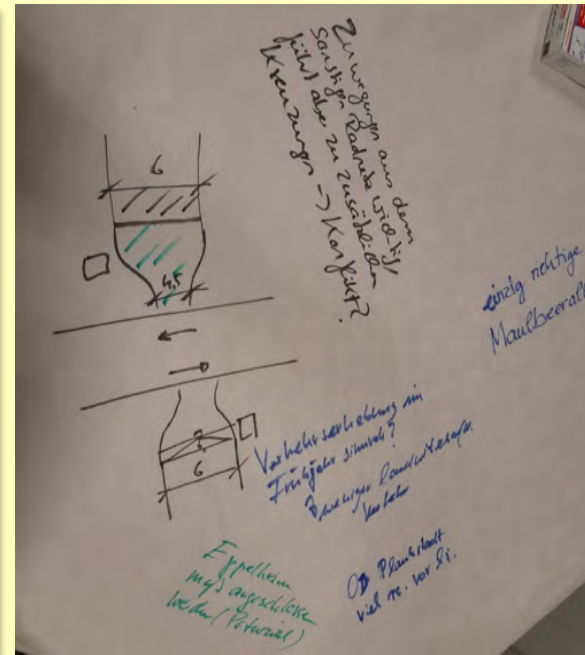 Zuwegungen aus dem
sonstigen Radnetz wichtig,
führt aber zu zusätzlichen
Kreuzungen -> Konflikt?
6
4,5
6
einzig richtige
Maulbeerall
Verkehrserhebung im
Frühjahr sinnvoll?
weniger landwirtschaftl.
Verkehr
Eppelheim
muß angeschlossen
werden (Potenzial)
OD Plankstadt
viel re. vor li.